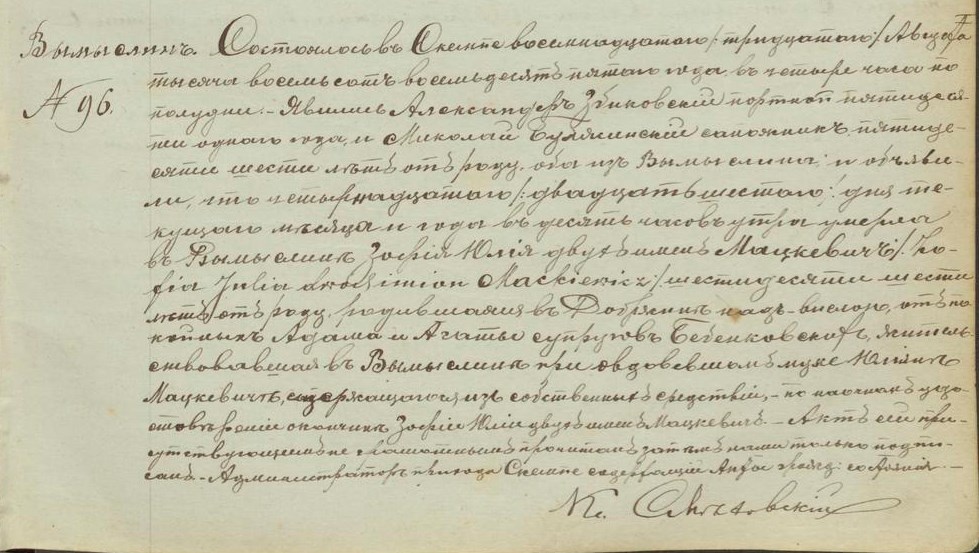 Вымыслинъ
№ 96.
Состоялось въ Скемпе восемнадцатаго /:тридцатаго:/ Августа
тысяча восемьсотъ восемьдесятъ пятаго года, въ четыре часа по
полудни. – Явились Александеръ портной пятидеся-
ти одного года, и Миколай сапожникъ пятиде-
сяти шести лѣтъ отъ роду, оба изъ Вымыслина, и объяви-
ли, что четырнадцатаго /:двадцать шестаго:/ дня те-
кущаго мѣсяца и года въ десять часовъ утра умерла
въ Вымыслинѣ Зофія Юлія двухъ именъ Мацкевичъ /:Zo-
fia Julia dwojga imion Mackiewicz:/ шестидесяти шести
лѣтъ отъ роду, родившаяся въ Добржинѣ надъ-вислою, отъ по-
койныхъ Адама и Агаты супруговъ житель-
ствовавшая въ Вымыслинѣ при овдовевшомъ мужѣ Юліанѣ
Мацкевичъ, содержащагося изъ собственныхъ средствъ, – по наочномъ удо-
стовѣреніи о кончинѣ Зофіи Юліи двухъ именъ Мацкевичъ. – Актъ сей при-
сутствующимъ неграмотнымъ прочитанъ затѣмъ нами только подпи-
санъ. – Администраторъ прихода Скемпе содержащій Акты гражд: состоянія. –
Кс.